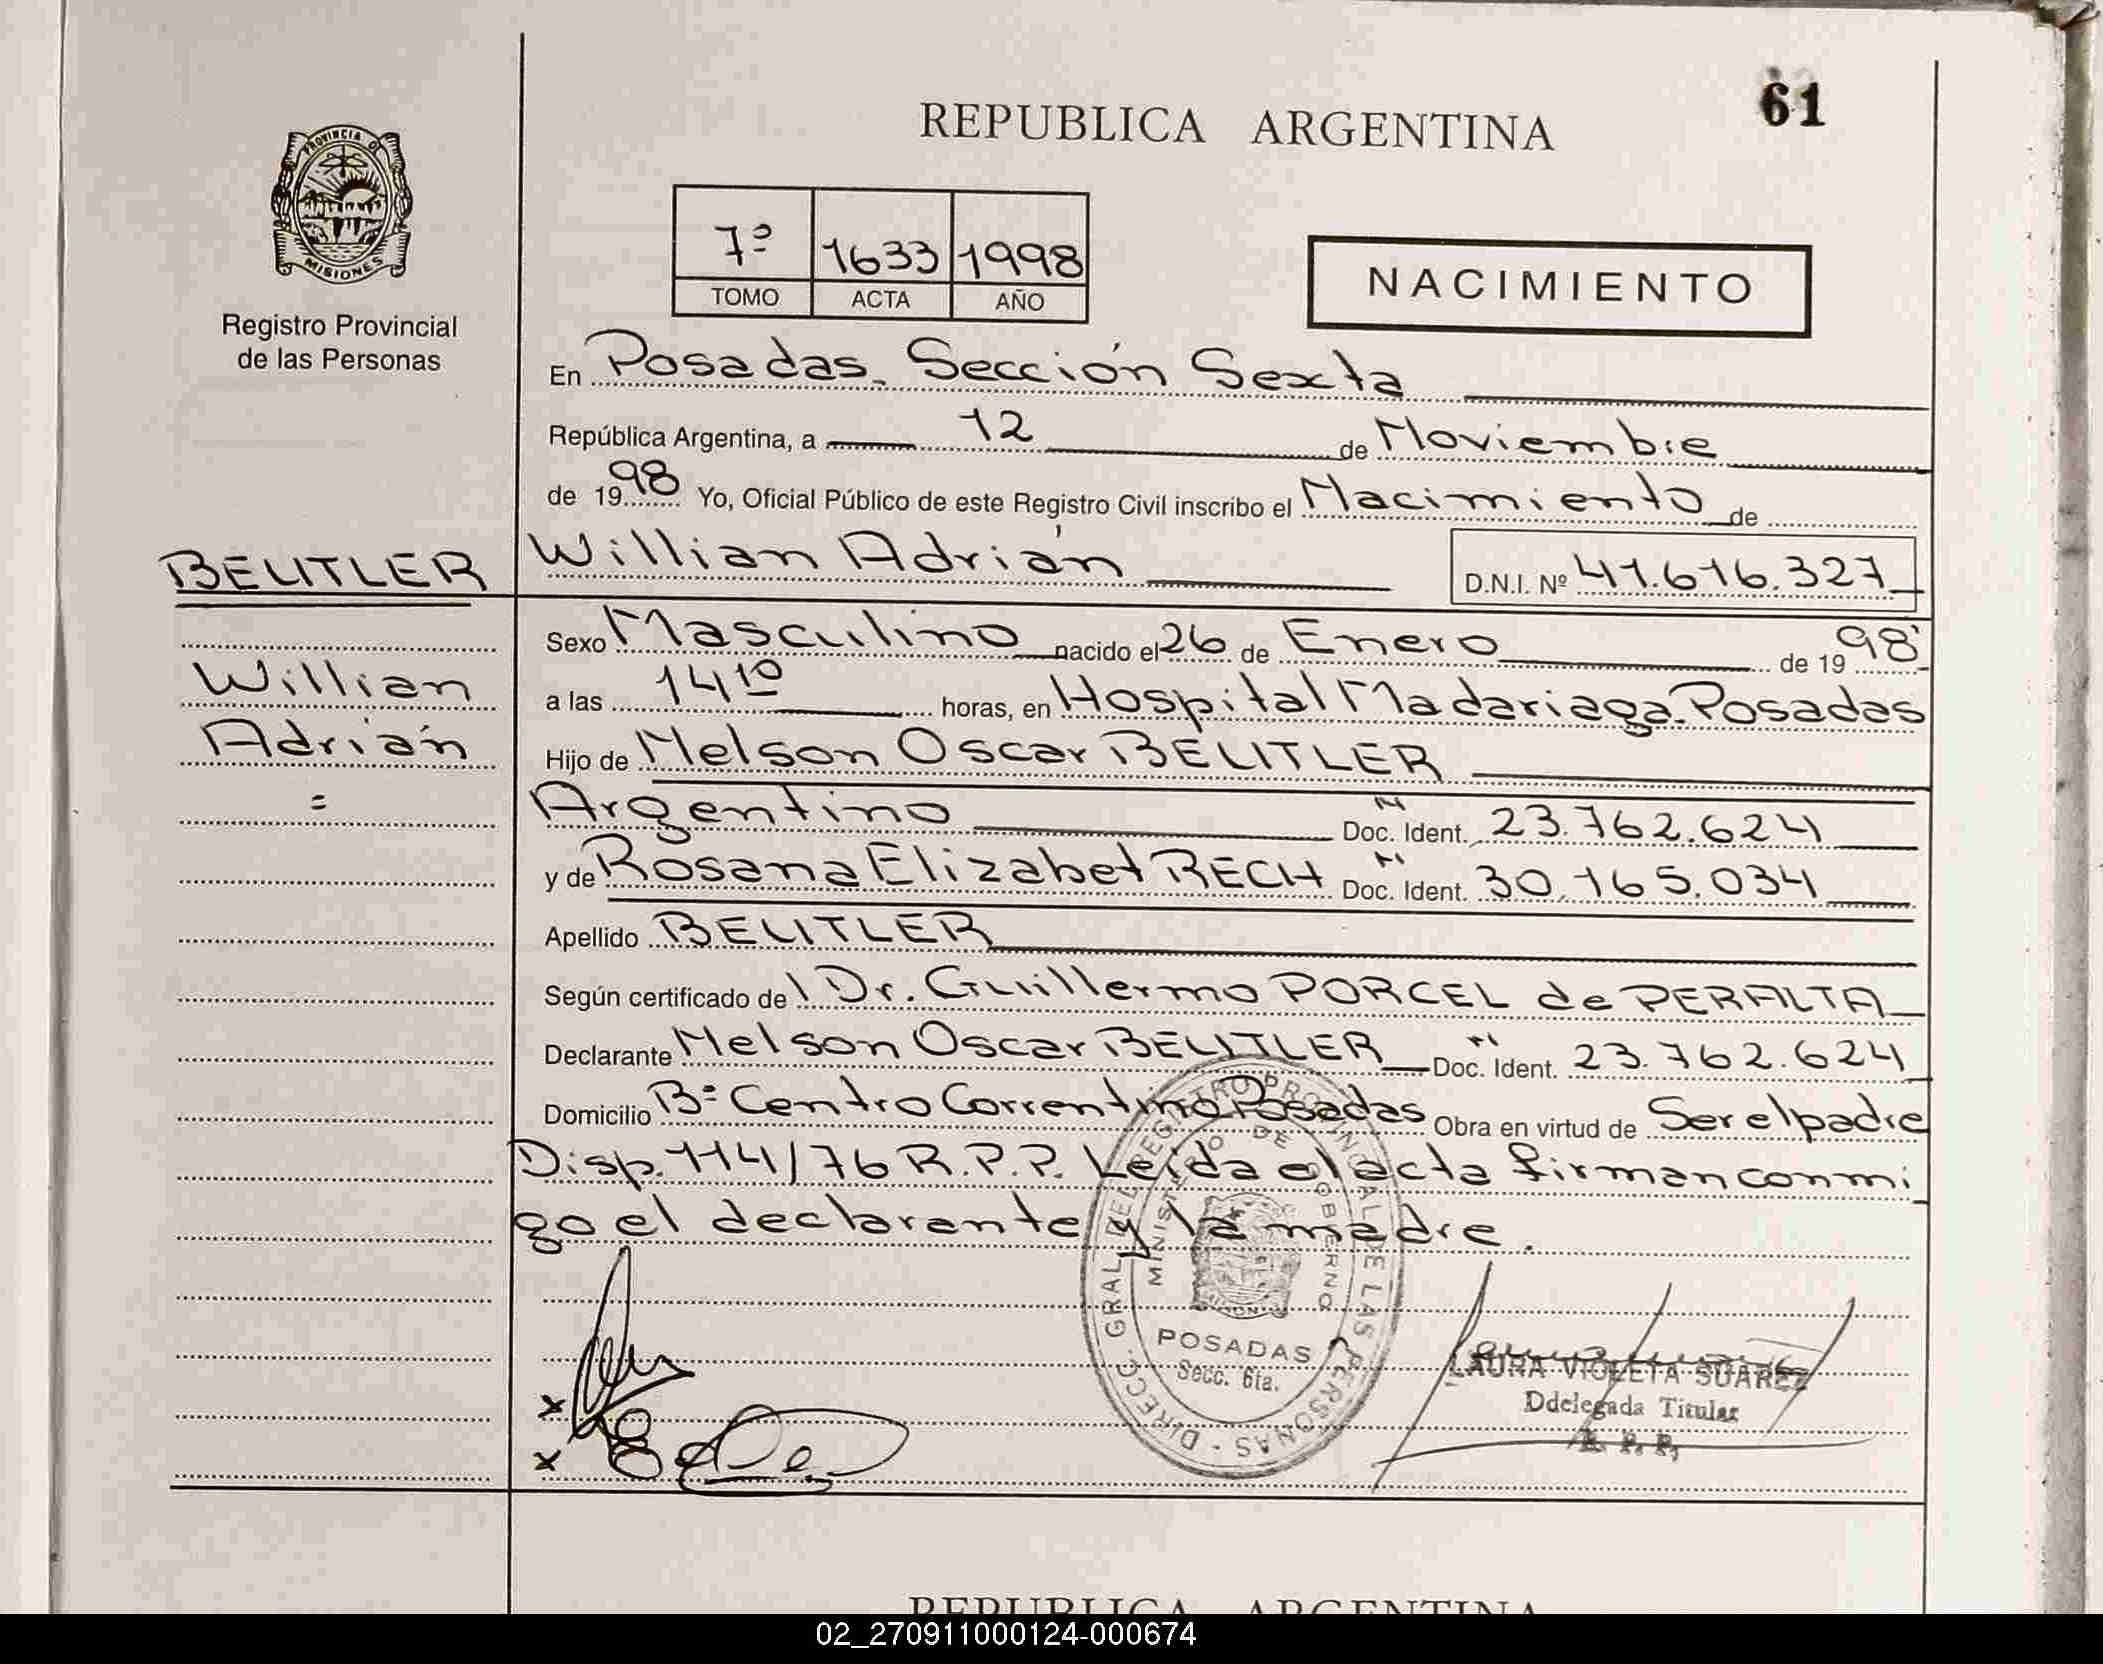 61
REPUBLICA ARGENTINA
PROVINCIA DE
MISIONES
Registro Provincial
de las Personas
7º 1633 1998
TOMO ACTA AÑO
NACIMIENTO
En Posadas. Sección Sexta
República Argentina, a 12 de Noviembre
de 1998 Yo, Oficial Público de este Registro Civil inscribo el Nacimiento de
BEUTLER Willian Adrián D.N.I. Nº 41.616.327
Sexo Masculino nacido el 26 de Enero de 1998
Willian
a las 14 10 horas, en Hospital Madariaga-Posadas
Adrián
Hijo de Nelson Oscar BEUTLER
=
Argentino Doc. Ident. 23.762.624
y de Rosana Elizabet RECH Doc. Ident. 30.165.034
Apellido BEUTLER
Según certificado del Dr. Guillermo PORCEL de PERALTA
Declarante Nelson Oscar BEUTLER Doc. Ident. 23.762.624
Domicilio Bº Centro Correntino Posadas Obra en virtud de Ser el padre
Disp. 114/76 R.P.P. Leida el acta firman conmi
go el declarante y la madre.
DIRECC. GRAL. DEL REGISTRO PROVINCIAL DE LAS PERSONAS
MINISTERIO DE GOBIERNO
POSADAS
Secc. 6ta.
LAURA VIOLETA SUAREZ
Ddelegada Titular
R. P. P.
x
x
REPUBLICA ARGENTINA
02_270911000124-000674